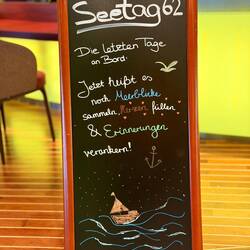 Seetag 62
Die letzten Tage
an Bord:
Jetzt heißt es
noch Meerblicke
sammeln, Herzen füllen
& Erinnerungen
verankern!